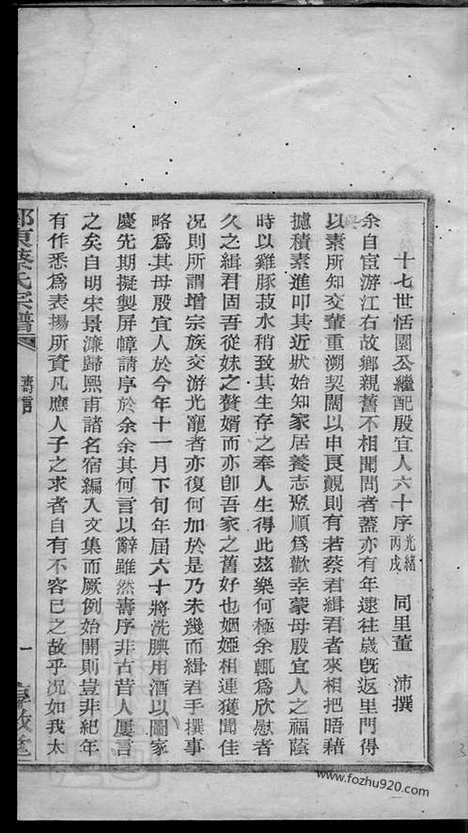 十七世恬園公繼配殷宜人六十序光緒丙戌　同里董　沛撰
余自宦游江右故鄉親舊不相聞問者蓋亦有年遠往歲旣返里門得
以素所知交輩重溯契闊以申良觀則有若蔡君緝君者來相把晤藉
攄積素進叩其近狀始知家居養志聚順爲歡幸蒙母殷宜人之福蔭
時以雞豚菽水稍致其生存之奉人生得此茲樂何極余輒爲欣慰者
久之緝君固吾從妹之贅婿而亦卽吾家之舊好也姻婭相連獲聞佳
况則所謂增宗族交游光寵者亦復何加於是乃未幾而緝君手撰事
略爲其母殷宜人於今年十一月下旬年届六十將洗腆用酒以圖家
慶先期擬製屏幛請序於余余其何言以辭雖然壽序非古昔人屢言
之矣自明宋景濂歸熙甫諸名宿編入文集而厥例始開則豈非紀年
有作悉爲表揚所資凡應人子之求者自有不容已之故乎况如我太
鄮東蔡氏宗譜
壽言
一
www.fozhu920.com